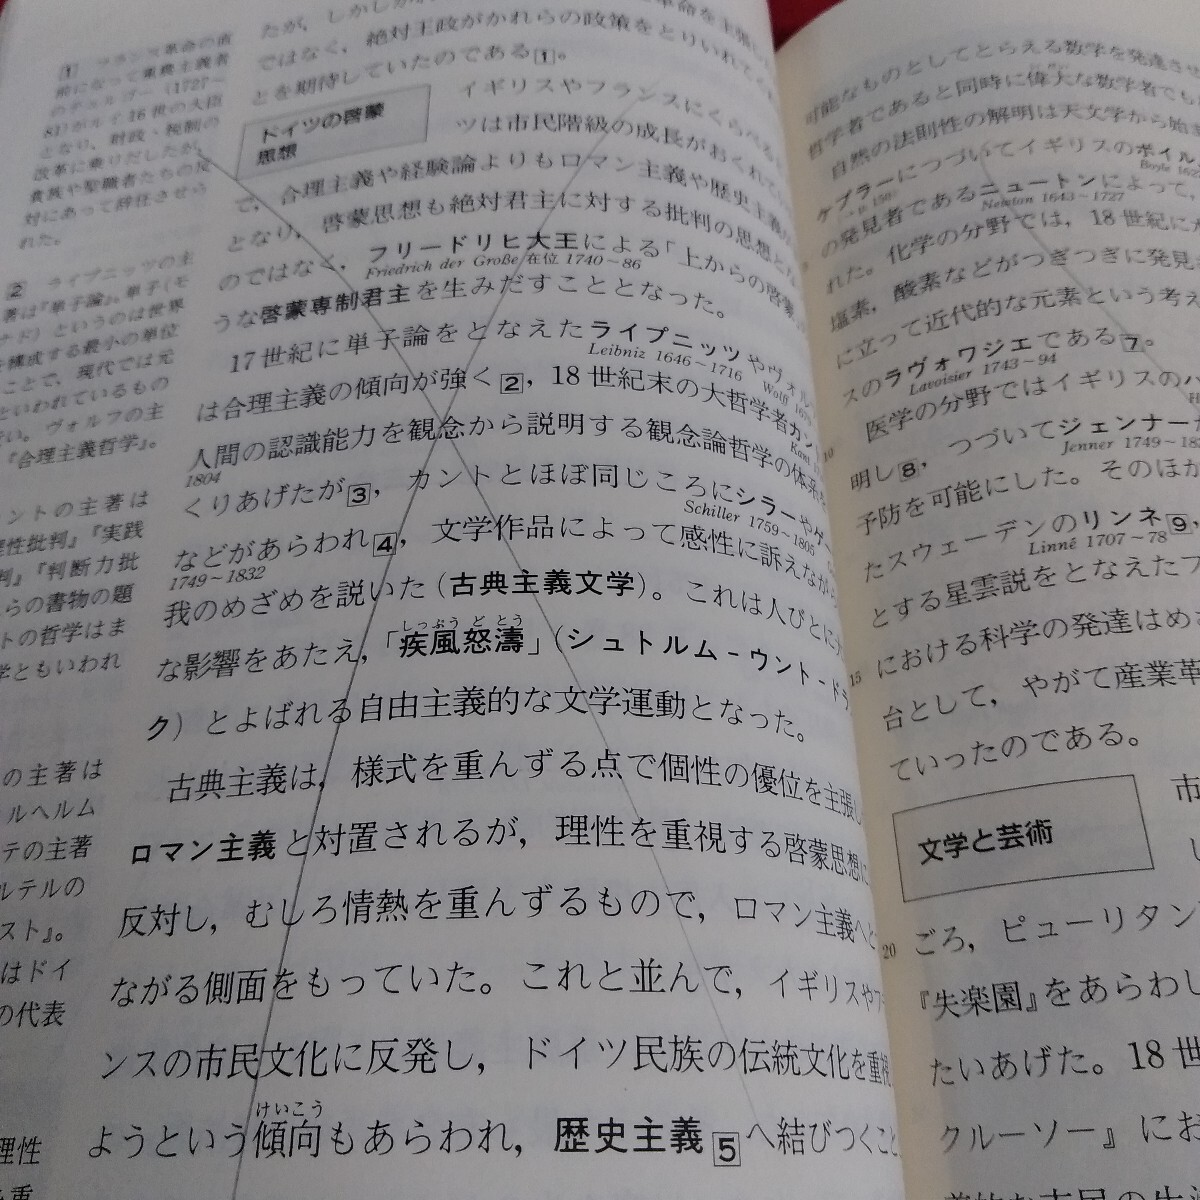 ではなく，絶対王政がかれらの政策をとりいれて
とを期待していたのである1。
ドイツの啓蒙
思想
イギリスやフランスにくらべると
ツは市民階級の成長がおくれて
で，合理主義や経験論よりもロマン主義や歴史主義が
となり，啓蒙思想も絶対君主に対する批判の思想とな
のではなく，フリードリヒ大王による「上からの啓蒙」
Friedrich der Große 在位 1740～86
うな啓蒙専制君主を生みだすこととなった。
17世紀に単子論をとなえたライプニッツやヴォル
Leibniz 1646～1716 Wolff
は合理主義の傾向が強く2，18世紀末の大哲学者カント
Kant
人間の認識能力を観念から説明する観念論哲学の体系を
1804
くりあげたが3，カントとほぼ同じころにシラーやゲー
Schiller 1759～1805
などがあらわれ4，文学作品によって感性に訴えながら
1749～1832
我のめざめを説いた（古典主義文学）。これは人びとに
な影響をあたえ，「疾風怒濤」（シュトルム-ウント-ドラ
しっぷう ど とう
ク）とよばれる自由主義的な文学運動となった。
古典主義は，様式を重んずる点で個性の優位を主張し
ロマン主義と対置されるが，理性を重視する啓蒙思想に
反対し，むしろ情熱を重んずるもので，ロマン主義へと
ながる側面をもっていた。これと並んで，イギリスやフラ
ンスの市民文化に反発し，ドイツ民族の伝統文化を重視
けいこう
ようという傾向もあらわれ，歴史主義5へ結びつくこと
1 フランス革命の直
前になって重農主義者
のテュルゴー（1727～
81）がルイ16世の大臣
となり，財政・税制の
改革に乗りだしたが，
貴族や聖職者たちの反
対にあって辞任させら
れた。
2 ライプニッツの主
著は『単子論』。単子（モ
ナド）というのは世界
を構成する最小の単位
ことで，現代では元
といわれているもの
い。ヴォルフの主
『合理主義哲学』。
ントの主著は
理性批判』『実践
判』『判断力批
らの書物の題
トの哲学はま
学ともいわれ
の主著は
ルヘルム
テの主著
ルテルの
スト』。
はドイ
の代表
理性
可能なものとしてとらえる数学を発達させ
哲学者であると同時に偉大な数学者でも
自然の法則性の解明は天文学から始
ケプラーにつづいてイギリスのボイル
→p.150 Boyle
の発見者であるニュートンによって，
Newton 1643～1727
れた。化学の分野では，18世紀に
塩素，酸素などがつぎつぎに発見
に立って近代的な元素という考え
スのラヴォワジエである7。
Lavoisier 1743～94
医学の分野ではイギリスのハ
10
明し8，つづいてジェンナーが
Jenner 1749～
予防を可能にした。そのほか
たスウェーデンのリンネ9
Linné 1707～78
とする星雲説をとなえたフ
における科学の発達はめざ
15
台として，やがて産業革
ていったのである。
文学と芸術
市
ごろ，ピューリタン
20
『失楽園』をあらわし
たいあげた。18世
クルーソー』にお